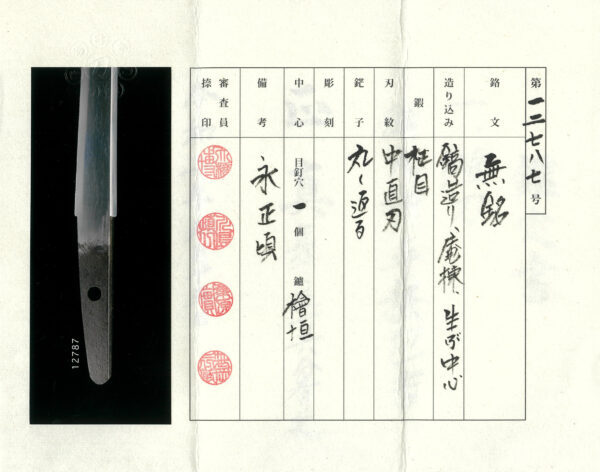 第一二七八七号
銘文 無銘
造り込み 鎬造り、庵棟、生ぶ中心
鍛 柾目
刃紋 中直刃
鋩子 丸く返る
彫刻
中心 目釘穴 一個 鑢 檜垣
備考 永正頃
審査員捺印
12787